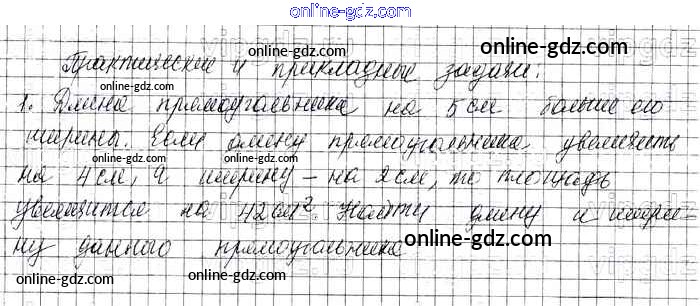 online-gdz.com
Практические и прикладные задачи:
online-gdz.com
online-gdz.com
1. Длина прямоугольника на 5 см больше его
online-gdz.com
ширины. Если длину прямоугольника увеличить
online-gdz.com
на 4 см, а ширину – на 2 см, то площадь
online-gdz.com
увеличится на 42 см². Найти длину и шири-
online-gdz.com
ну данного прямоугольника
online-gdz.com
online-gdz.com
online-gdz.com